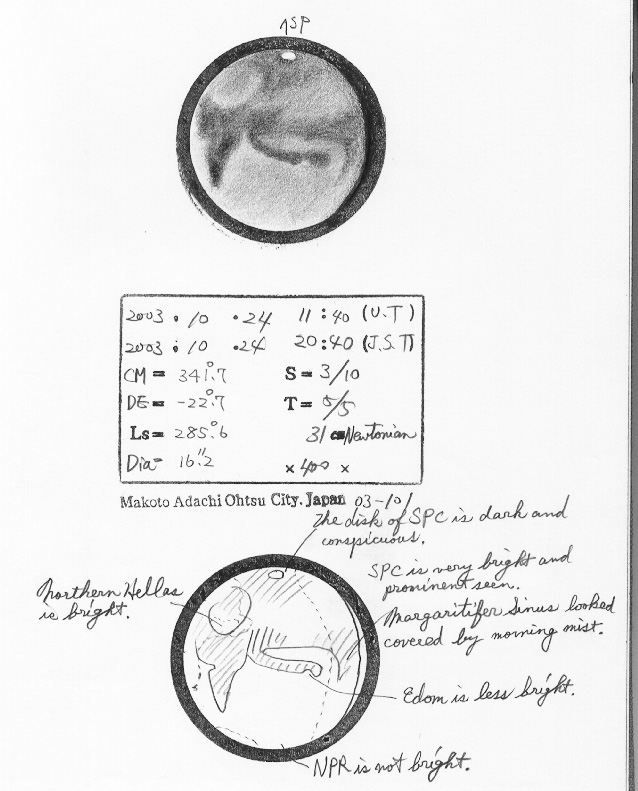 ↑SP
2003 . 10 . 24 11 : 40 (U.T)
2003 . 10 . 24 20 : 40 (J.S.T)
CM = 341°.7 S = 3/10
DE = -22°.7 T = 5/5
Ls = 285°.6 31 cm Newtonian
Dia= 16".2 × 400 ×
Makoto Adachi Ohtsu City. Japan 03-101
The disk of SPC is dark and
conspicuous.
SPC is very bright and
prominent seen.
Northern Hellas
is bright.
Margaritifer Sinus looked
covered by morning mist.
Edom is less bright.
NPR is not bright.